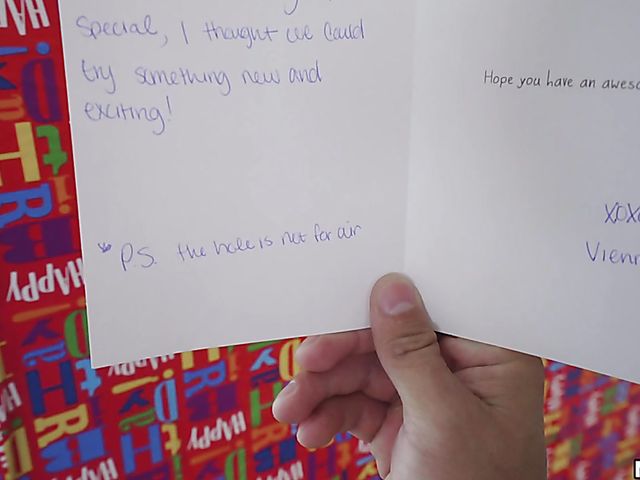 special, I thought we could
try something new and
exciting!
* P.S. the hole is not for air
Hope you have an
XOXO
HAPPY
HAPPY
HAPPY